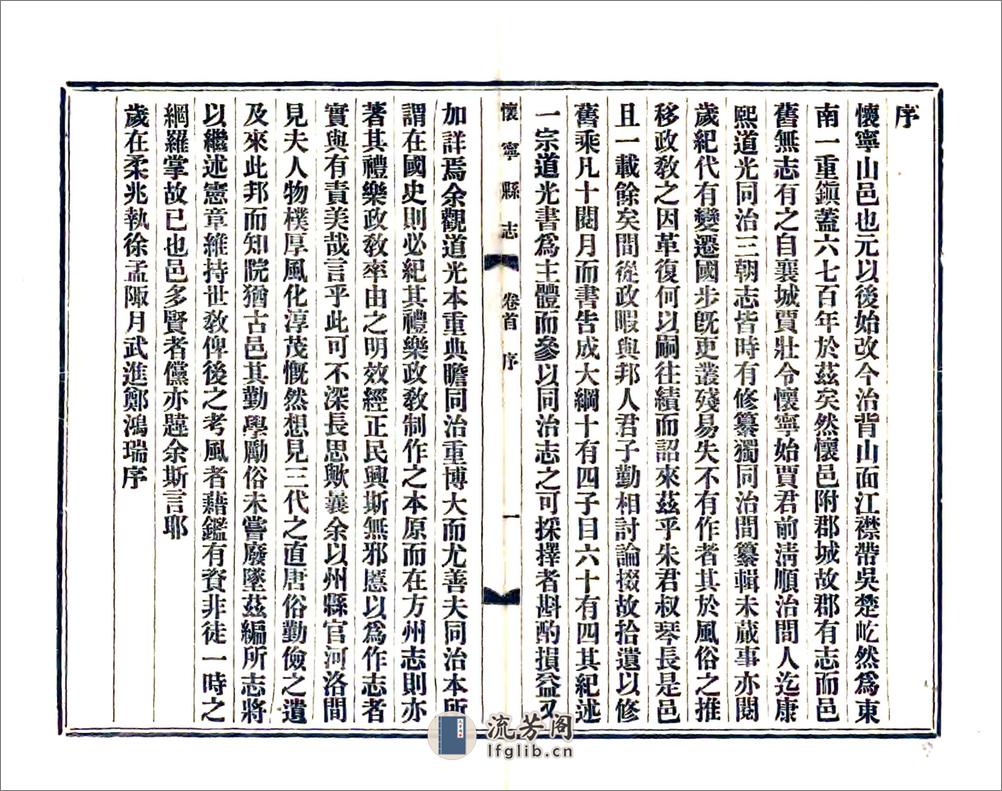 序
懷寧山邑也元以後始改今治背山面江襟帶吳楚屹然爲東
南一重鎮蓋六七百年於茲矣然懷邑附郡城故郡有志而邑
舊無志有之自襄城賈壯令懷寧始賈君前淸順治間人迄康
熙道光同治三朝志皆時有修纂獨同治間纂輯未蕆事亦閱
歲紀代有變遷國步旣更叢殘易失不有作者其於風俗之推
移政敎之因革復何以嗣往績而詔來茲乎朱君叔琴長是邑
且一載餘矣間從政暇與邦人君子勤相討論掇故拾遺以修
舊乘凡十閱月而書告成大綱十有四子目六十有四其紀述
一宗道光書爲主體而參以同治志之可採擇者斟酌損益又
懷寧縣志 卷首 序 一
加詳焉余觀道光本重典瞻同治重博大而尤善夫同治本所
謂在國史則必紀其禮樂政敎制作之本原而在方州志則亦
著其禮樂政敎率由之明效經正民興斯無邪慝以爲作志者
實與有責美哉言乎此可不深長思歟義余以州縣官河洛間
見夫人物樸厚風化淳茂慨然想見三代之直唐俗勤儉之遺
及來此邦而知皖猶古邑其勤學勵俗未嘗廢墜茲編所志將
以繼述憲章維持世敎俾後之考風者藉鑑有資非徒一時之
網羅掌故已也邑多賢者儻亦韙余斯言耶
歲在柔兆執徐孟陬月武進鄭鴻瑞序
流芳阁
lfglib.cn